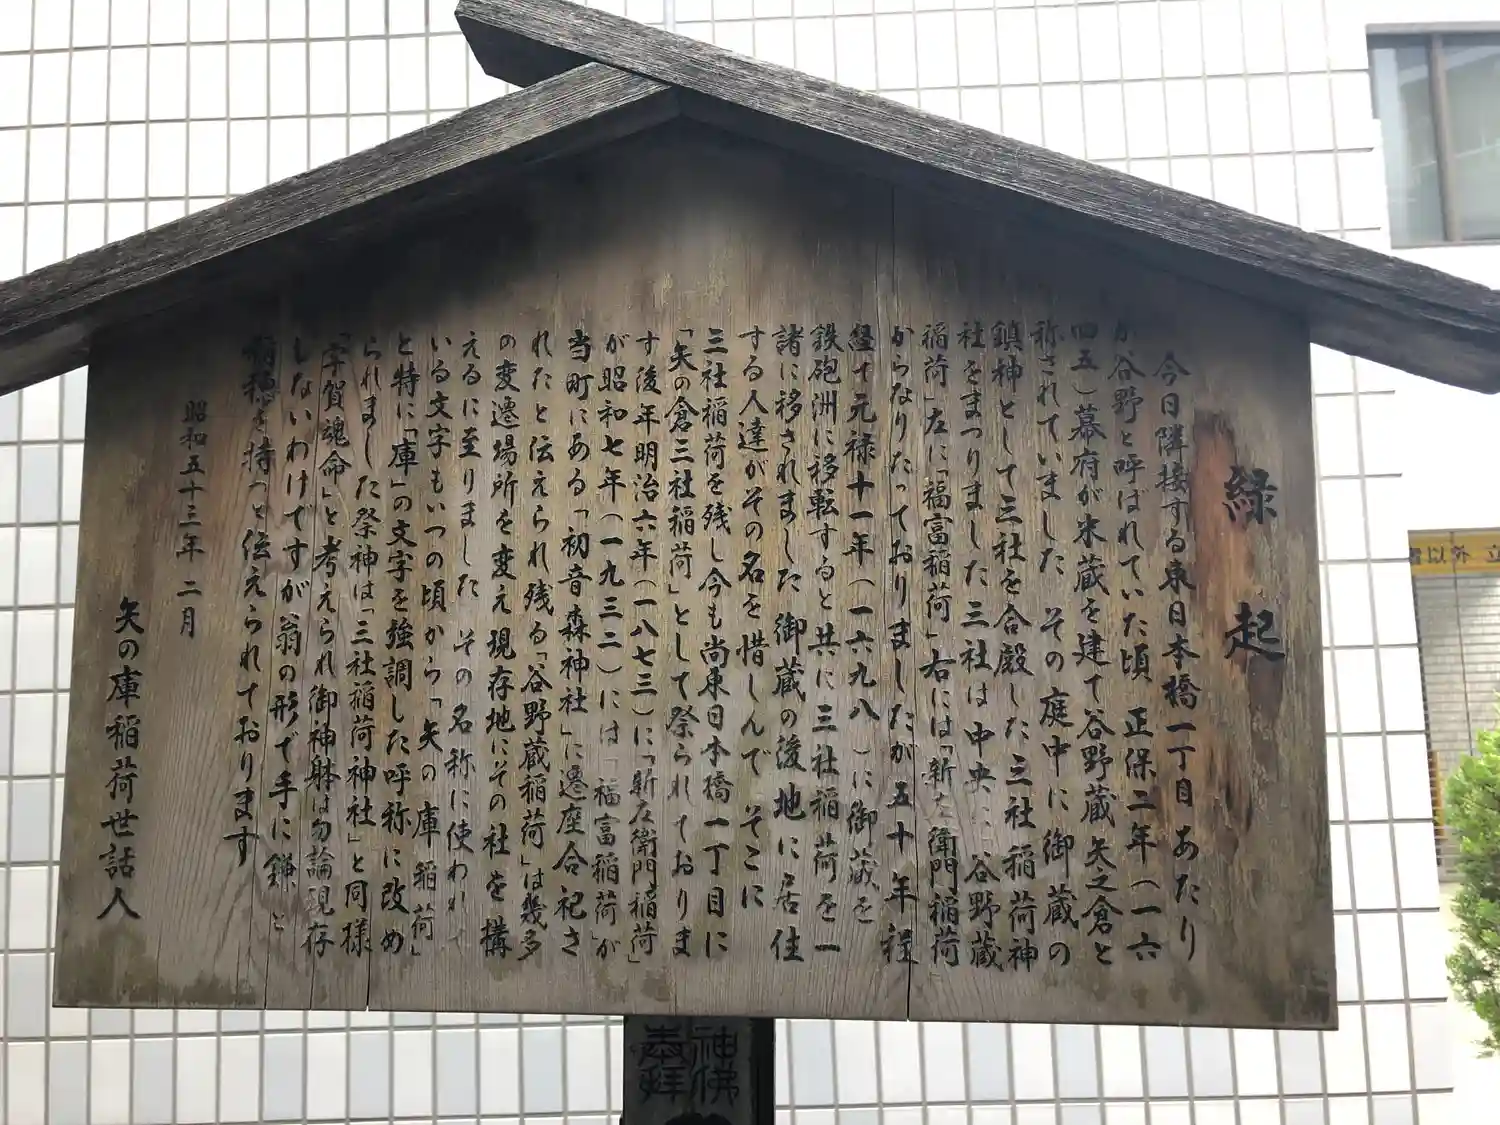 縁起
今日隣接する東日本橋一丁目あたり
が谷野と呼ばれていた頃 正保二年(一六
四五)幕府が米蔵を建て谷野蔵矢之倉と
称されていました その庭中に御蔵の
鎮神として三社を合殿した三社稲荷神
社をまつりました三社は中央に谷野蔵
稲荷」左に「福富稲荷」右には「新左衛門稲荷
からなりたっておりましたが五十年程
経て元禄十一年(一六九八)に御蔵を
鉄砲洲に移転すると共に三社稲荷を一
諸に移されました御蔵の後地に居住
する人達がその名を惜しんで そこに
三社稲荷を残し今も尚東日本橋一丁目に
「矢の倉三社稲荷」として祭られておりま
す後年明治六年(一八七三)に「新左衛門稲荷」
が昭和七年(一九三二)には「福富稲荷」が
当町にある「初音森神社」に遷座合祀さ
れたと伝えられ残る「谷野蔵稲荷」は幾多
の変遷場所を変え現存地にその社を構
えるに至りました その名称に使われ
いる文字もいつの頃から「矢の庫稲荷」
と特に「庫」の文字を強調した呼称に改め
られました祭神は「三社稲荷神社」と同様
「宇賀魂命」と考えられ御神躰は勿論現存
しないわけですが翁の形で手に鎌と
稲穂を持つと伝えられております
昭和五十三年 二月
矢の庫稲荷世話人
神佛
奉拝
書以外 立